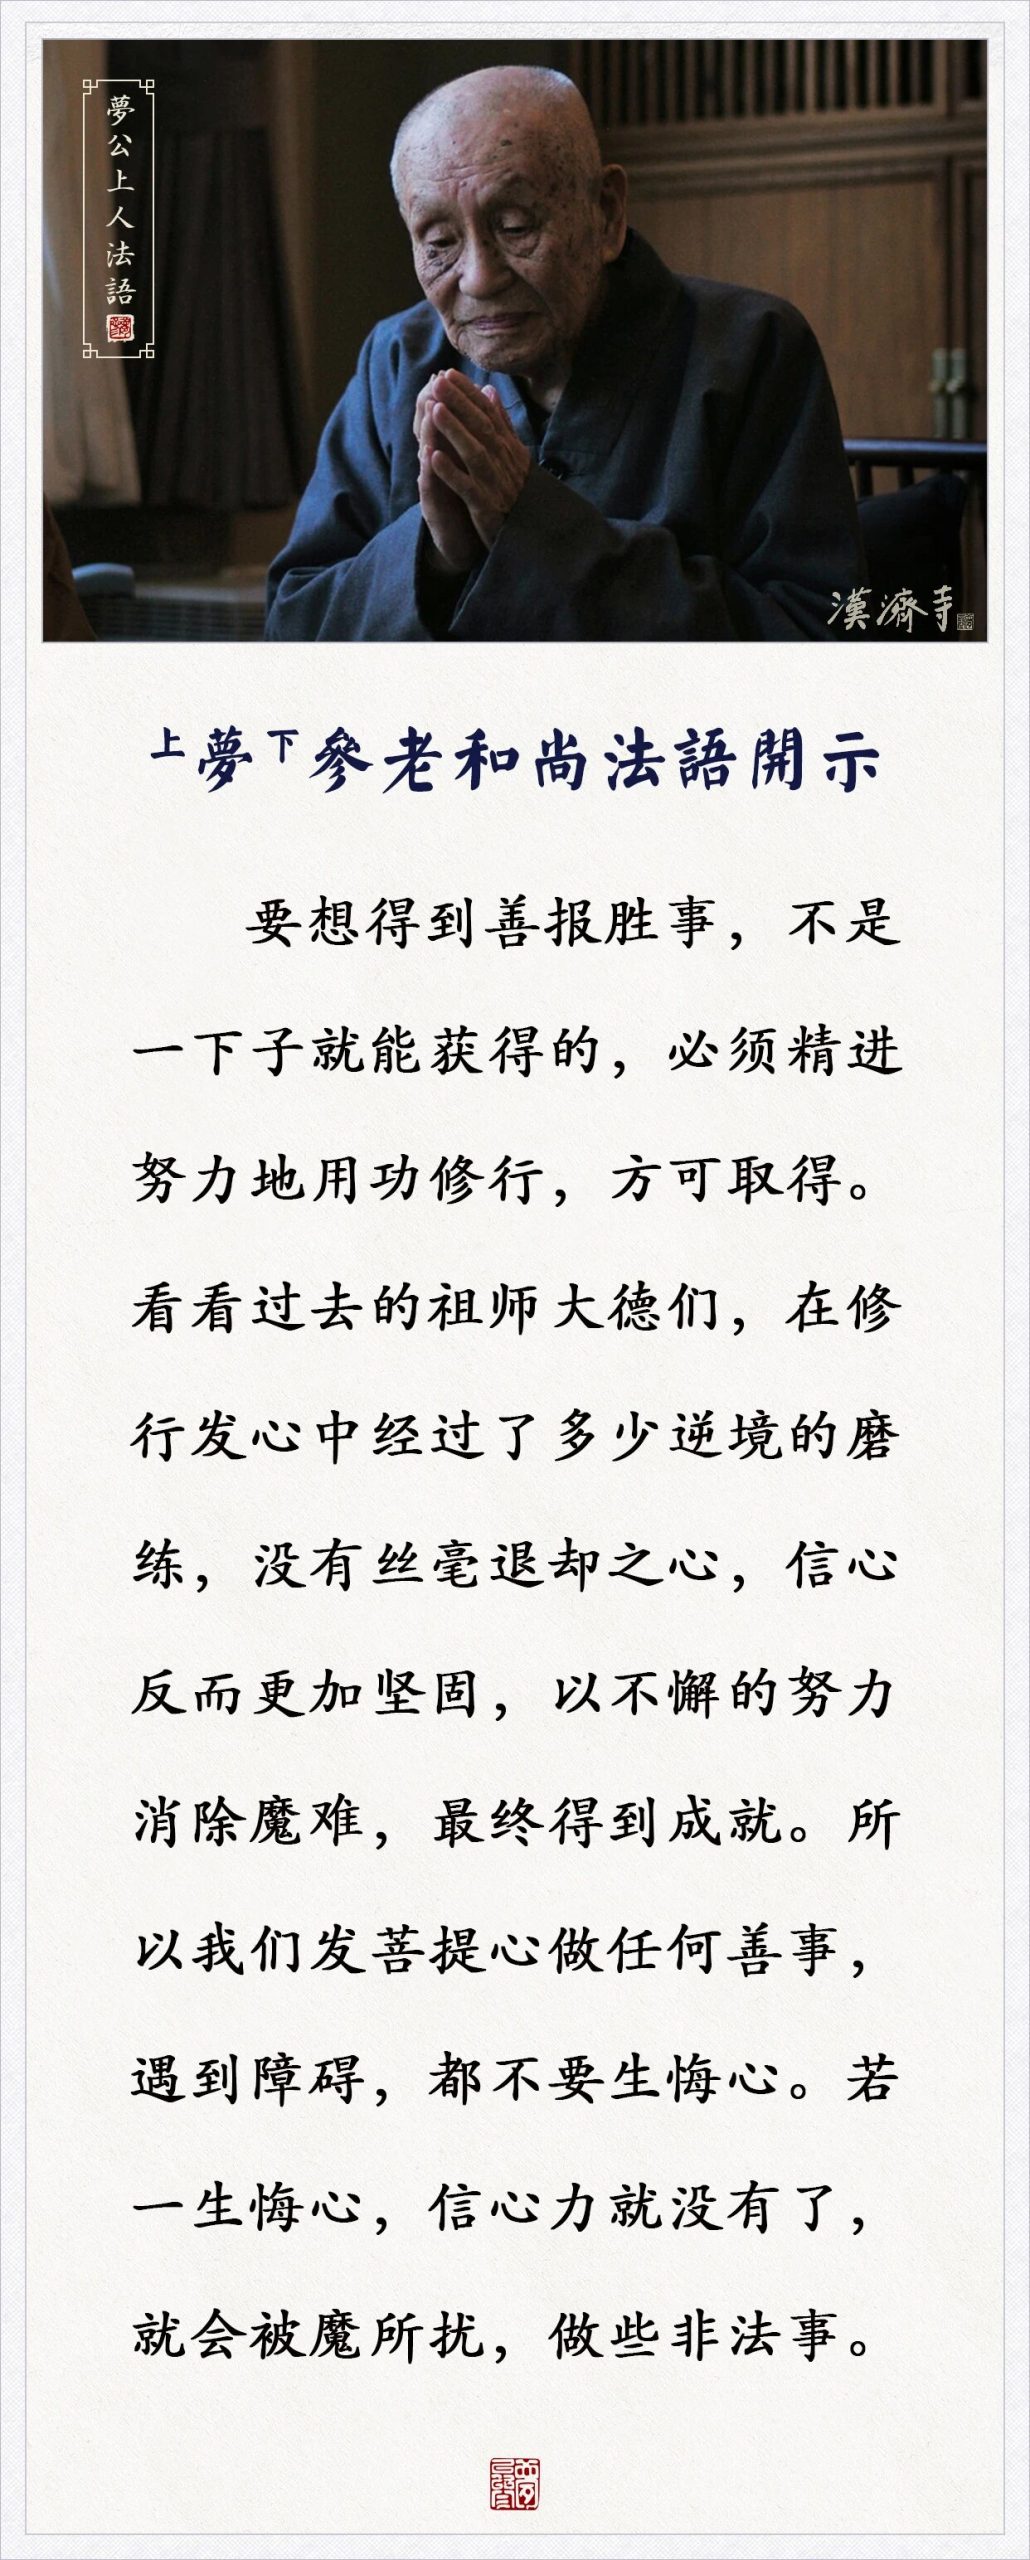 夢公上人法語
漢濟寺
上夢下參老和尚法語開示
要想得到善报胜事，不是
一下子就能获得的，必须精进
努力地用功修行，方可取得。
看看过去的祖师大德们，在修
行发心中经过了多少逆境的磨
练，没有丝毫退却之心，信心
反而更加坚固，以不懈的努力
消除魔难，最终得到成就。所
以我们发菩提心做任何善事，
遇到障碍，都不要生悔心。若
一生悔心，信心力就没有了，
就会被魔所扰，做些非法事。